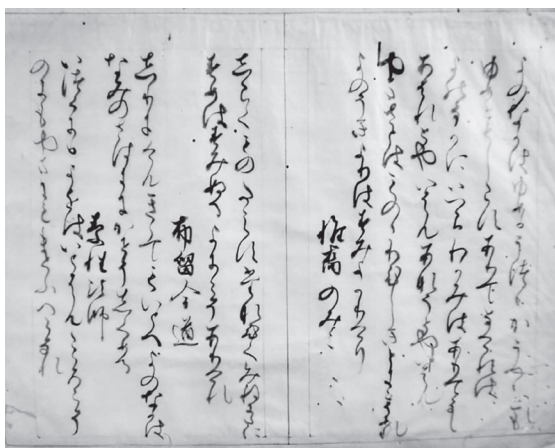 よのなかはゆめかうつゝかうつゝとも
ゆめともしらすありてなけれは
よのなかにいつらわかみはありてなし
あはれとやいはんあなうとやいはん
やまさとはものゝわひしきことこそあれ
よのうきよりはすみよかりけり
惟喬のみこ
しらくものたえすたなひくみねにたに
すめはすみぬるよにこそありけれ
布留今道
しりにけんきゝてもいとへよのなかは
なみのさはきにかせそしくめる
素性法師
いつこにかよをはいとはんこゝろこそ
のにもやまにもまとふへらなれ